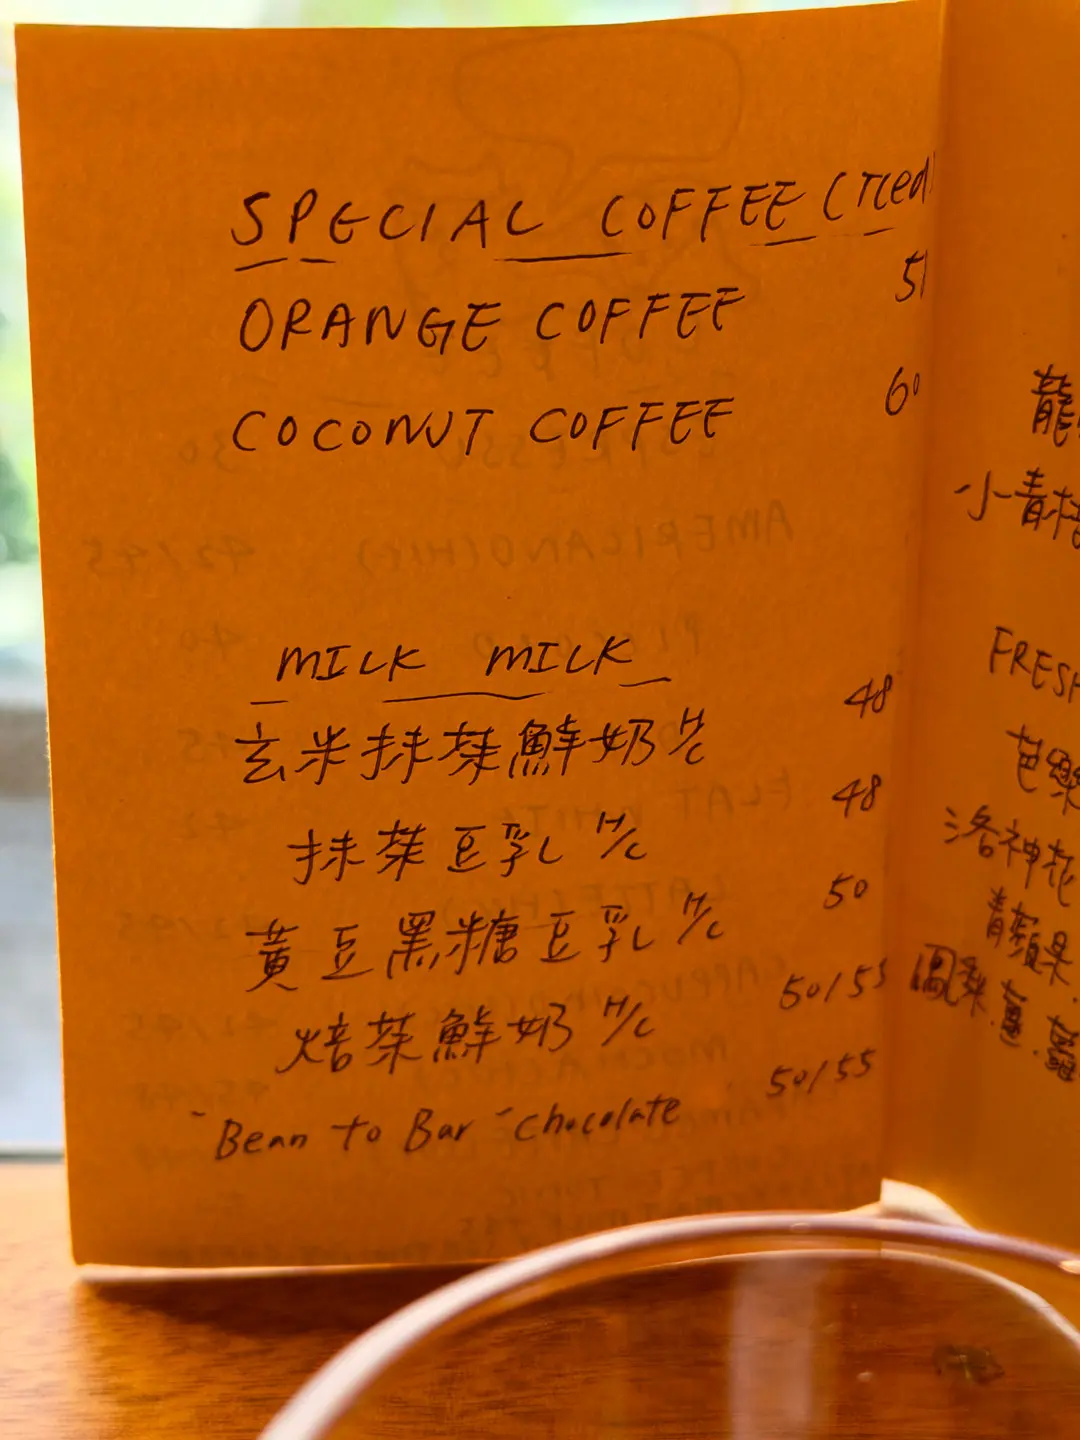 SPECIAL COFFEE (Iced
ORANGE COFFEE 51
COCONUT COFFEE 60
MILK MILK
玄米抹茶鮮奶 H/C 48
抹茶豆乳 H/C 48
黃豆黑糖豆乳 H/C 50
焙茶鮮奶 H/C 50/55
"Bean to Bar" chocolate 50/55
龍
小青柑
FRESH
芭樂
洛神花
青蘋果.
鳳梨.